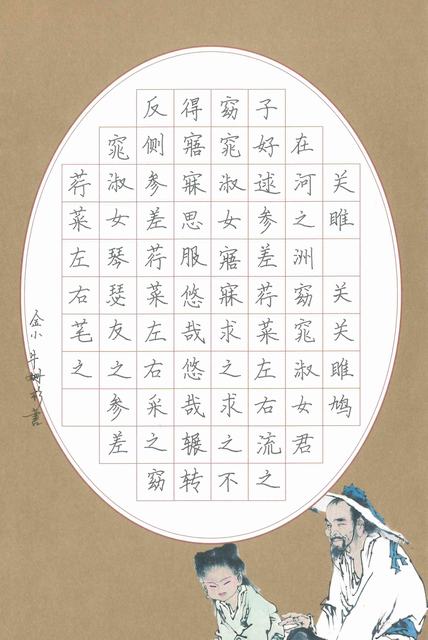 关雎 关关雎鸠
在河之洲窈窕淑女君
子好逑参差荇菜左右流之
窈窕淑女寤寐求之求之不
得寤寐思服悠哉悠哉辗转
反侧参差荇菜左右采之窈
窕淑女琴瑟友之参差
荇菜左右芼之
金小